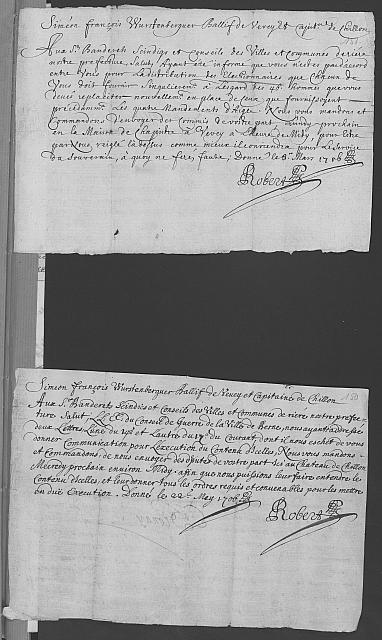 Simeon François Wurstenberguer Ballif de Vevey et Capitne de Chillon,
Aux Srs Banderets Scindigs et Conseils des Villes et Communes de riere
nostre prefecture, Salut, Ayant este informé que vous n'estes pas d'accord
entre Vous pour La distribution des Eslectionnaires que Chacun de
Vous doit fournir Singulierement à Lesgard des 40 hommes que vous
devés replacer nouvellement en place de ceux que fournissoyent
precedemment Les quatre Mandements d'Aigle. Nous vous mandons et
Commandons d'envoyer des Commis de vostre part Lundy prochain
en la Maison de à Vevey à Lheure de Midy, pour estre
par Nous, reiglé là dessus comme mieux il conviendra pour Le Service
du Souverain, à quoy ne ferés faute; Donné le 8e Mars 1706
Robert
Simeon François Wurstenberguer Ballif de Vevey et Capitaine de Chillon
150
Aux Srs Banderets Scindics et Conseils des Villes et Communes de riere nostre prefe-
cture Salut; LL.EE. du Conseil de Guerre de la Ville de Berne, nous ayant adressé
deux Lettres L'une du et L'autre du du Courant, dont il nous eschet de vous
donner Communication pour L'execution du Contenu d'Icelles, Nous vous mandons
et Commandons de nous envoyer des deputés de vostre part icy au Chateau de Chillon
Mecredy prochain environ Midy, afin que nous puissions leur faire entendre le
Contenu d'Icelles, et leur donner tous les ordres requis et convenables pour les mettre
en due Execution. Donné le 22e May 1706
Robert